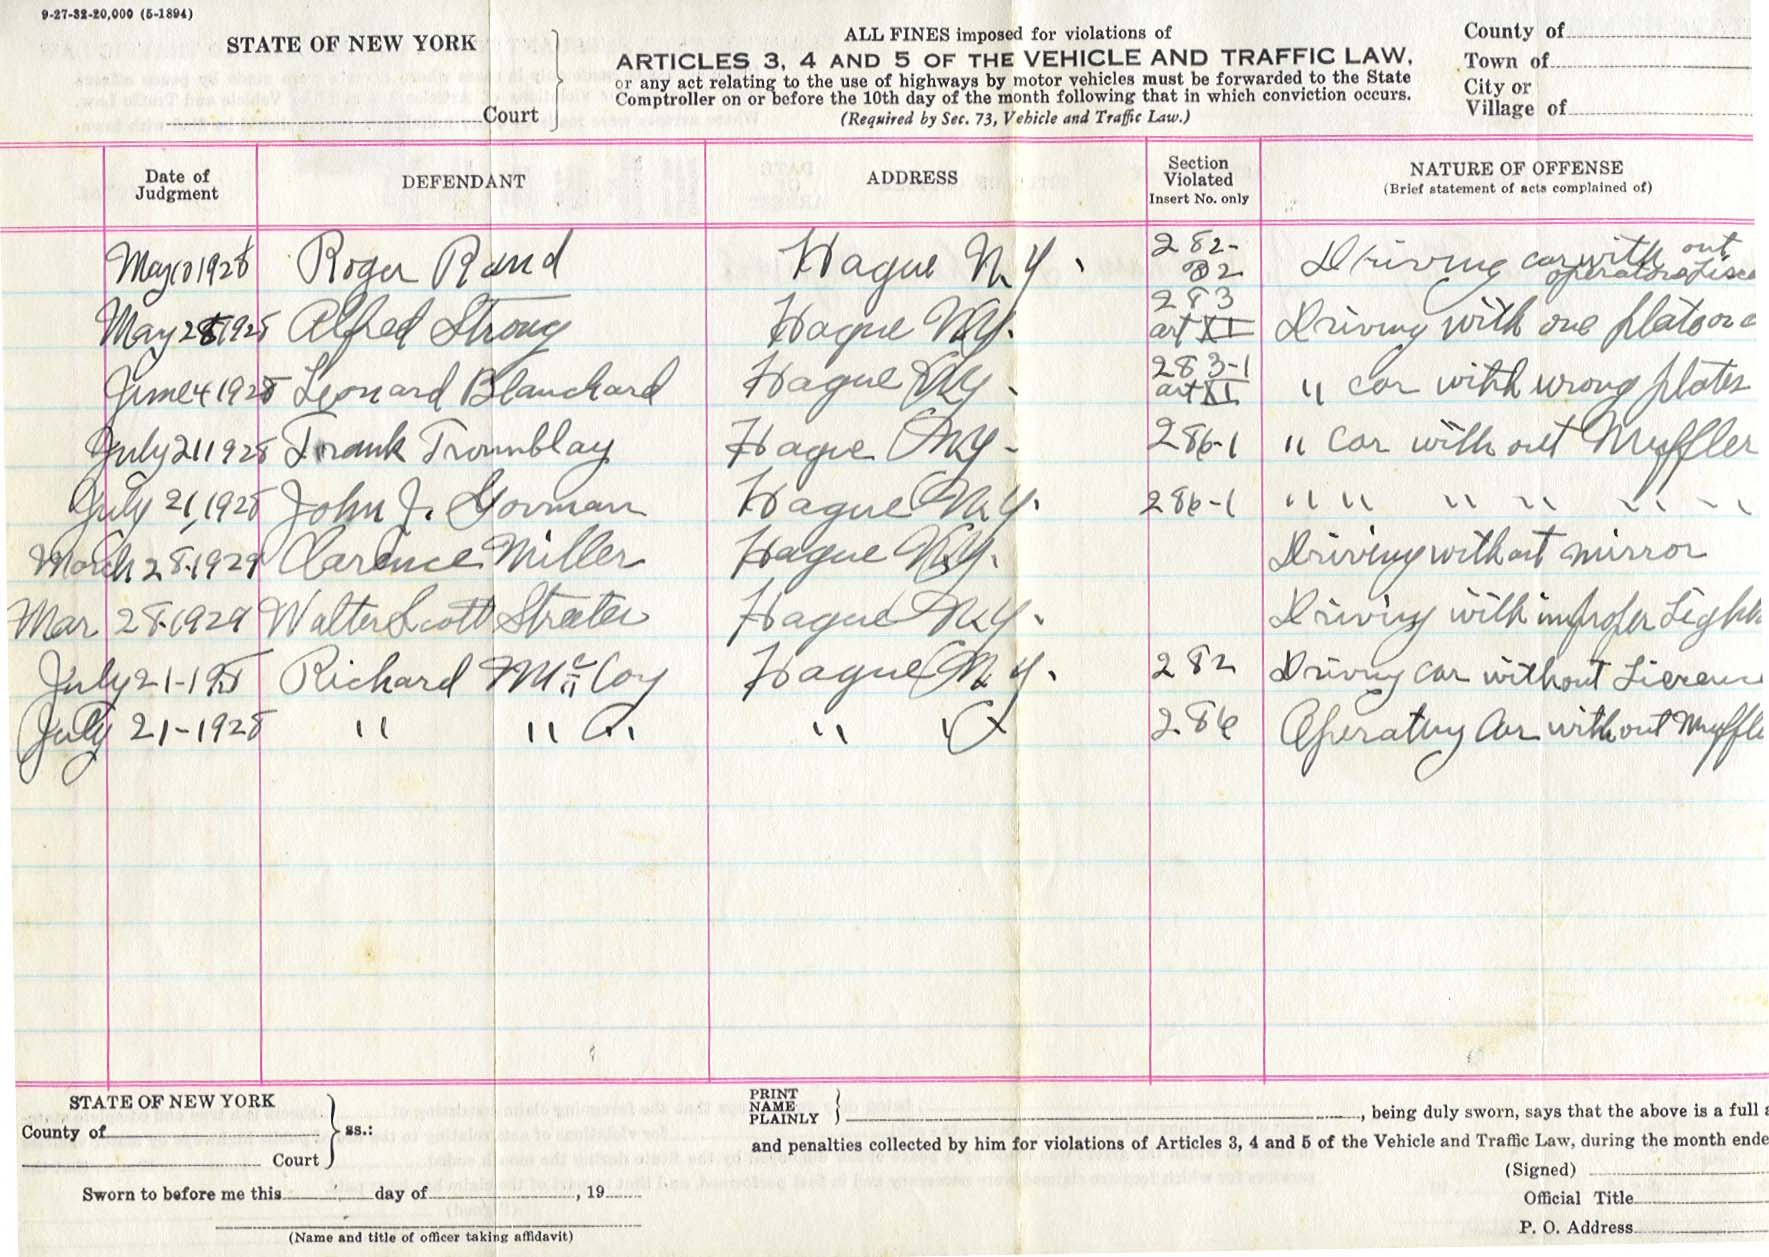 9-27-32-20,000 (5-1894)
STATE OF NEW YORK
Court
ALL FINES imposed for violations of
ARTICLES 3, 4 AND 5 OF THE VEHICLE AND TRAFFIC LAW,
or any act relating to the use of highways by motor vehicles must be forwarded to the State
Comptroller on or before the 10th day of the month following that in which conviction occurs.
(Required by Sec. 73, Vehicle and Traffic Law.)
County of
Town of
City or
Village of
Date of
Judgment
DEFENDANT
ADDRESS
Section
Violated
Insert No. only
NATURE OF OFFENSE
(Brief statement of acts complained of)
May 10 1928 Roger Rand Hague N.Y. 282- 82 Driving car with out operators
May 28 1928 Alfred Strong Hague N.Y. 283 art XI Driving with one plate on
June 24 1928 Leonard Blanchard Hague N.Y. 283-1 art XI " car with wrong plates
July 21 1928 Frank Tromblay Hague N.Y. 286-1 " car with out Muffler
July 21, 1928 John J. Gorman Hague N.Y. 286-1 " " " " " "
March 28-1929 Clarence Miller Hague N.Y. Driving without mirror
Mar 28-1929 Walter Scott Streeter Hague N.Y. Driving with improper Ligh
July 21- Richard McCoy Hague N.Y. 282 Driving car without
July 21-1928 " " " " 286 Operating Car without Muffle
STATE OF NEW YORK
County of
Court
ss.:
Sworn to before me this day of , 19
(Name and title of officer taking affidavit)
PRINT
NAME
PLAINLY
, being duly sworn, says that the above is a full a
and penalties collected by him for violations of Articles 3, 4 and 5 of the Vehicle and Traffic Law, during the month ende
(Signed)
Official Title
P. O. Address